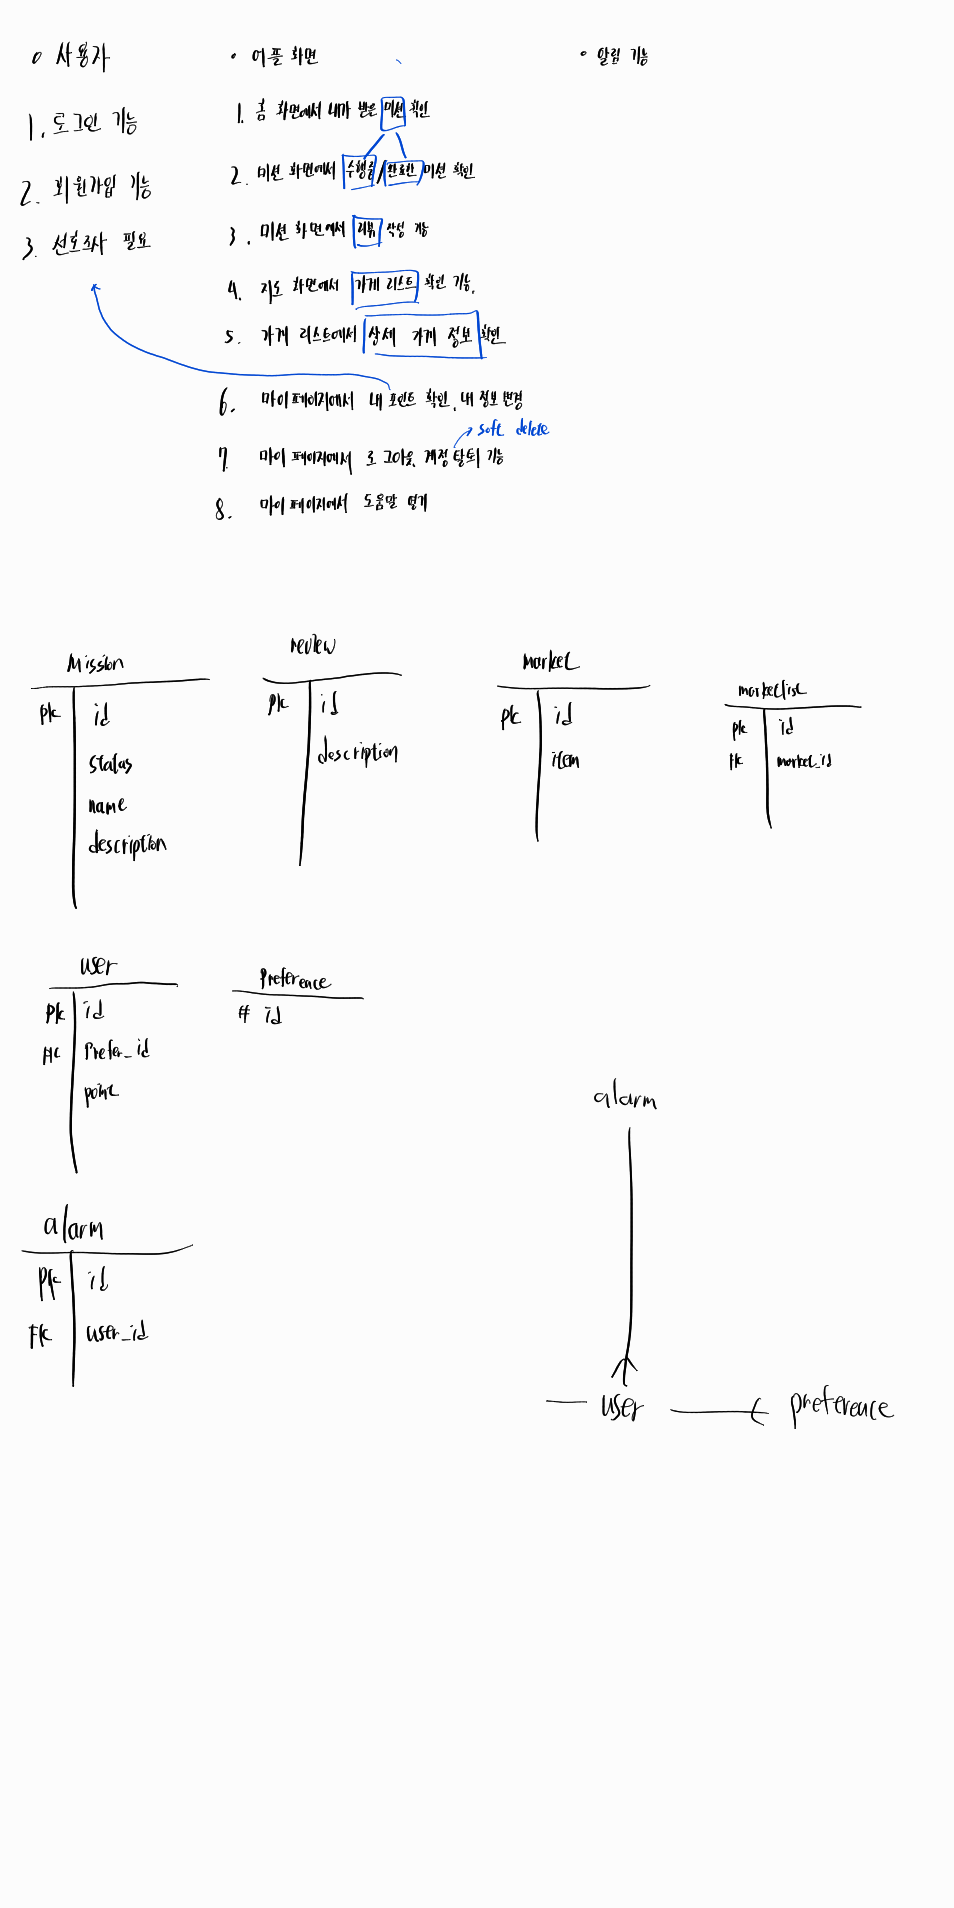 • 사용자
1. 로그인 기능
2. 회원가입 기능
3. 선호조사 필요
• 어플 화면
1. 홈 화면에서 내가 받은 미션 확인
2. 미션 화면에서 수행중/완료한 미션 확인
3. 미션 화면에서 리뷰 작성 기능
4. 지도 화면에서 가게 리스트 확인 기능.
5. 가게 리스트에서 상세 가게 정보 확인
6. 마이 페이지에서 내 포인트 확인, 내 정보 변경
soft delete
7. 마이 페이지에서 로그아웃, 계정 탈퇴 기능
8. 마이 페이지에서 도움말 얻기
• 알림 기능
Mission
pk id
status
name
description
review
pk id
description
market
pk id
item
marketlist
pk id
fk market_id
user
pk id
fk Prefer_id
point
Preference
# id
alarm
pk id
Fk user_id
alarm
user
preference